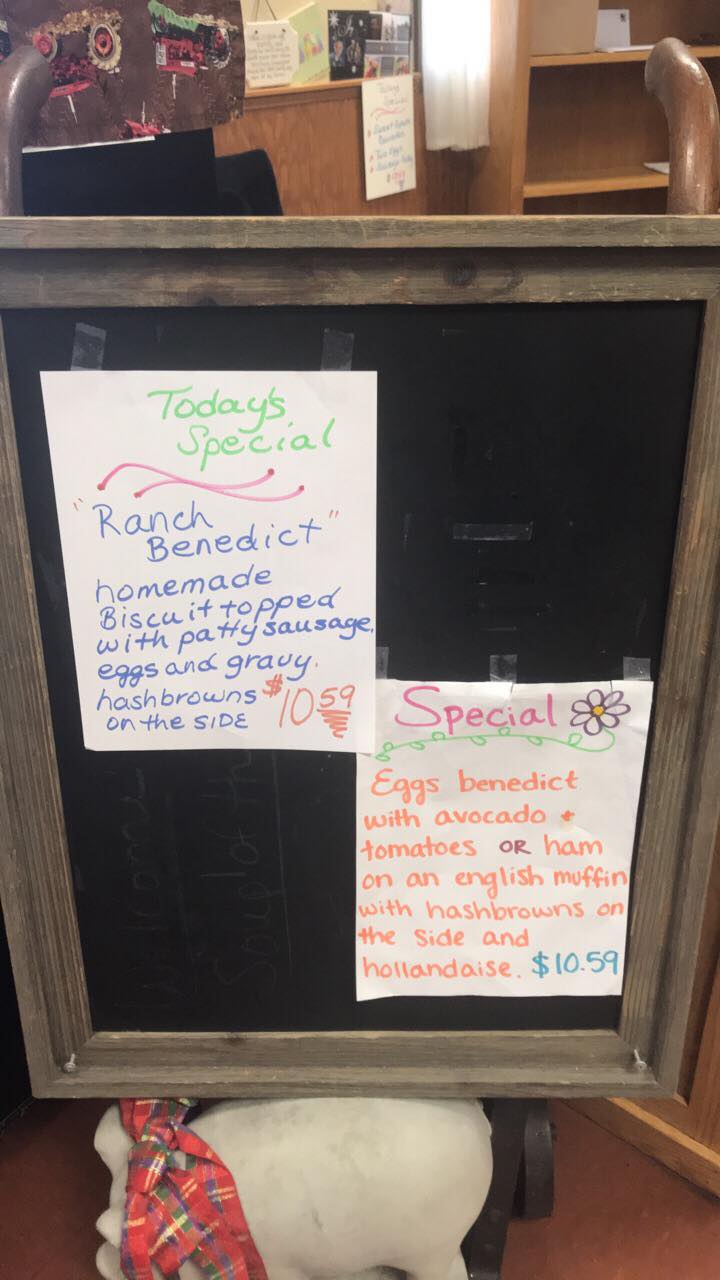 Today's
Special
"Ranch
Benedict"
homemade
Biscuit topped
with patty sausage,
eggs and gravy.
hashbrowns $10 59
on the SIDE
Special
Eggs benedict
with avocado +
tomatoes OR ham
on an english muffin
with hashbrowns on
the side and
hollandaise. $10.59
Today's
Special
Two Eggs
Welcome
Soup of th